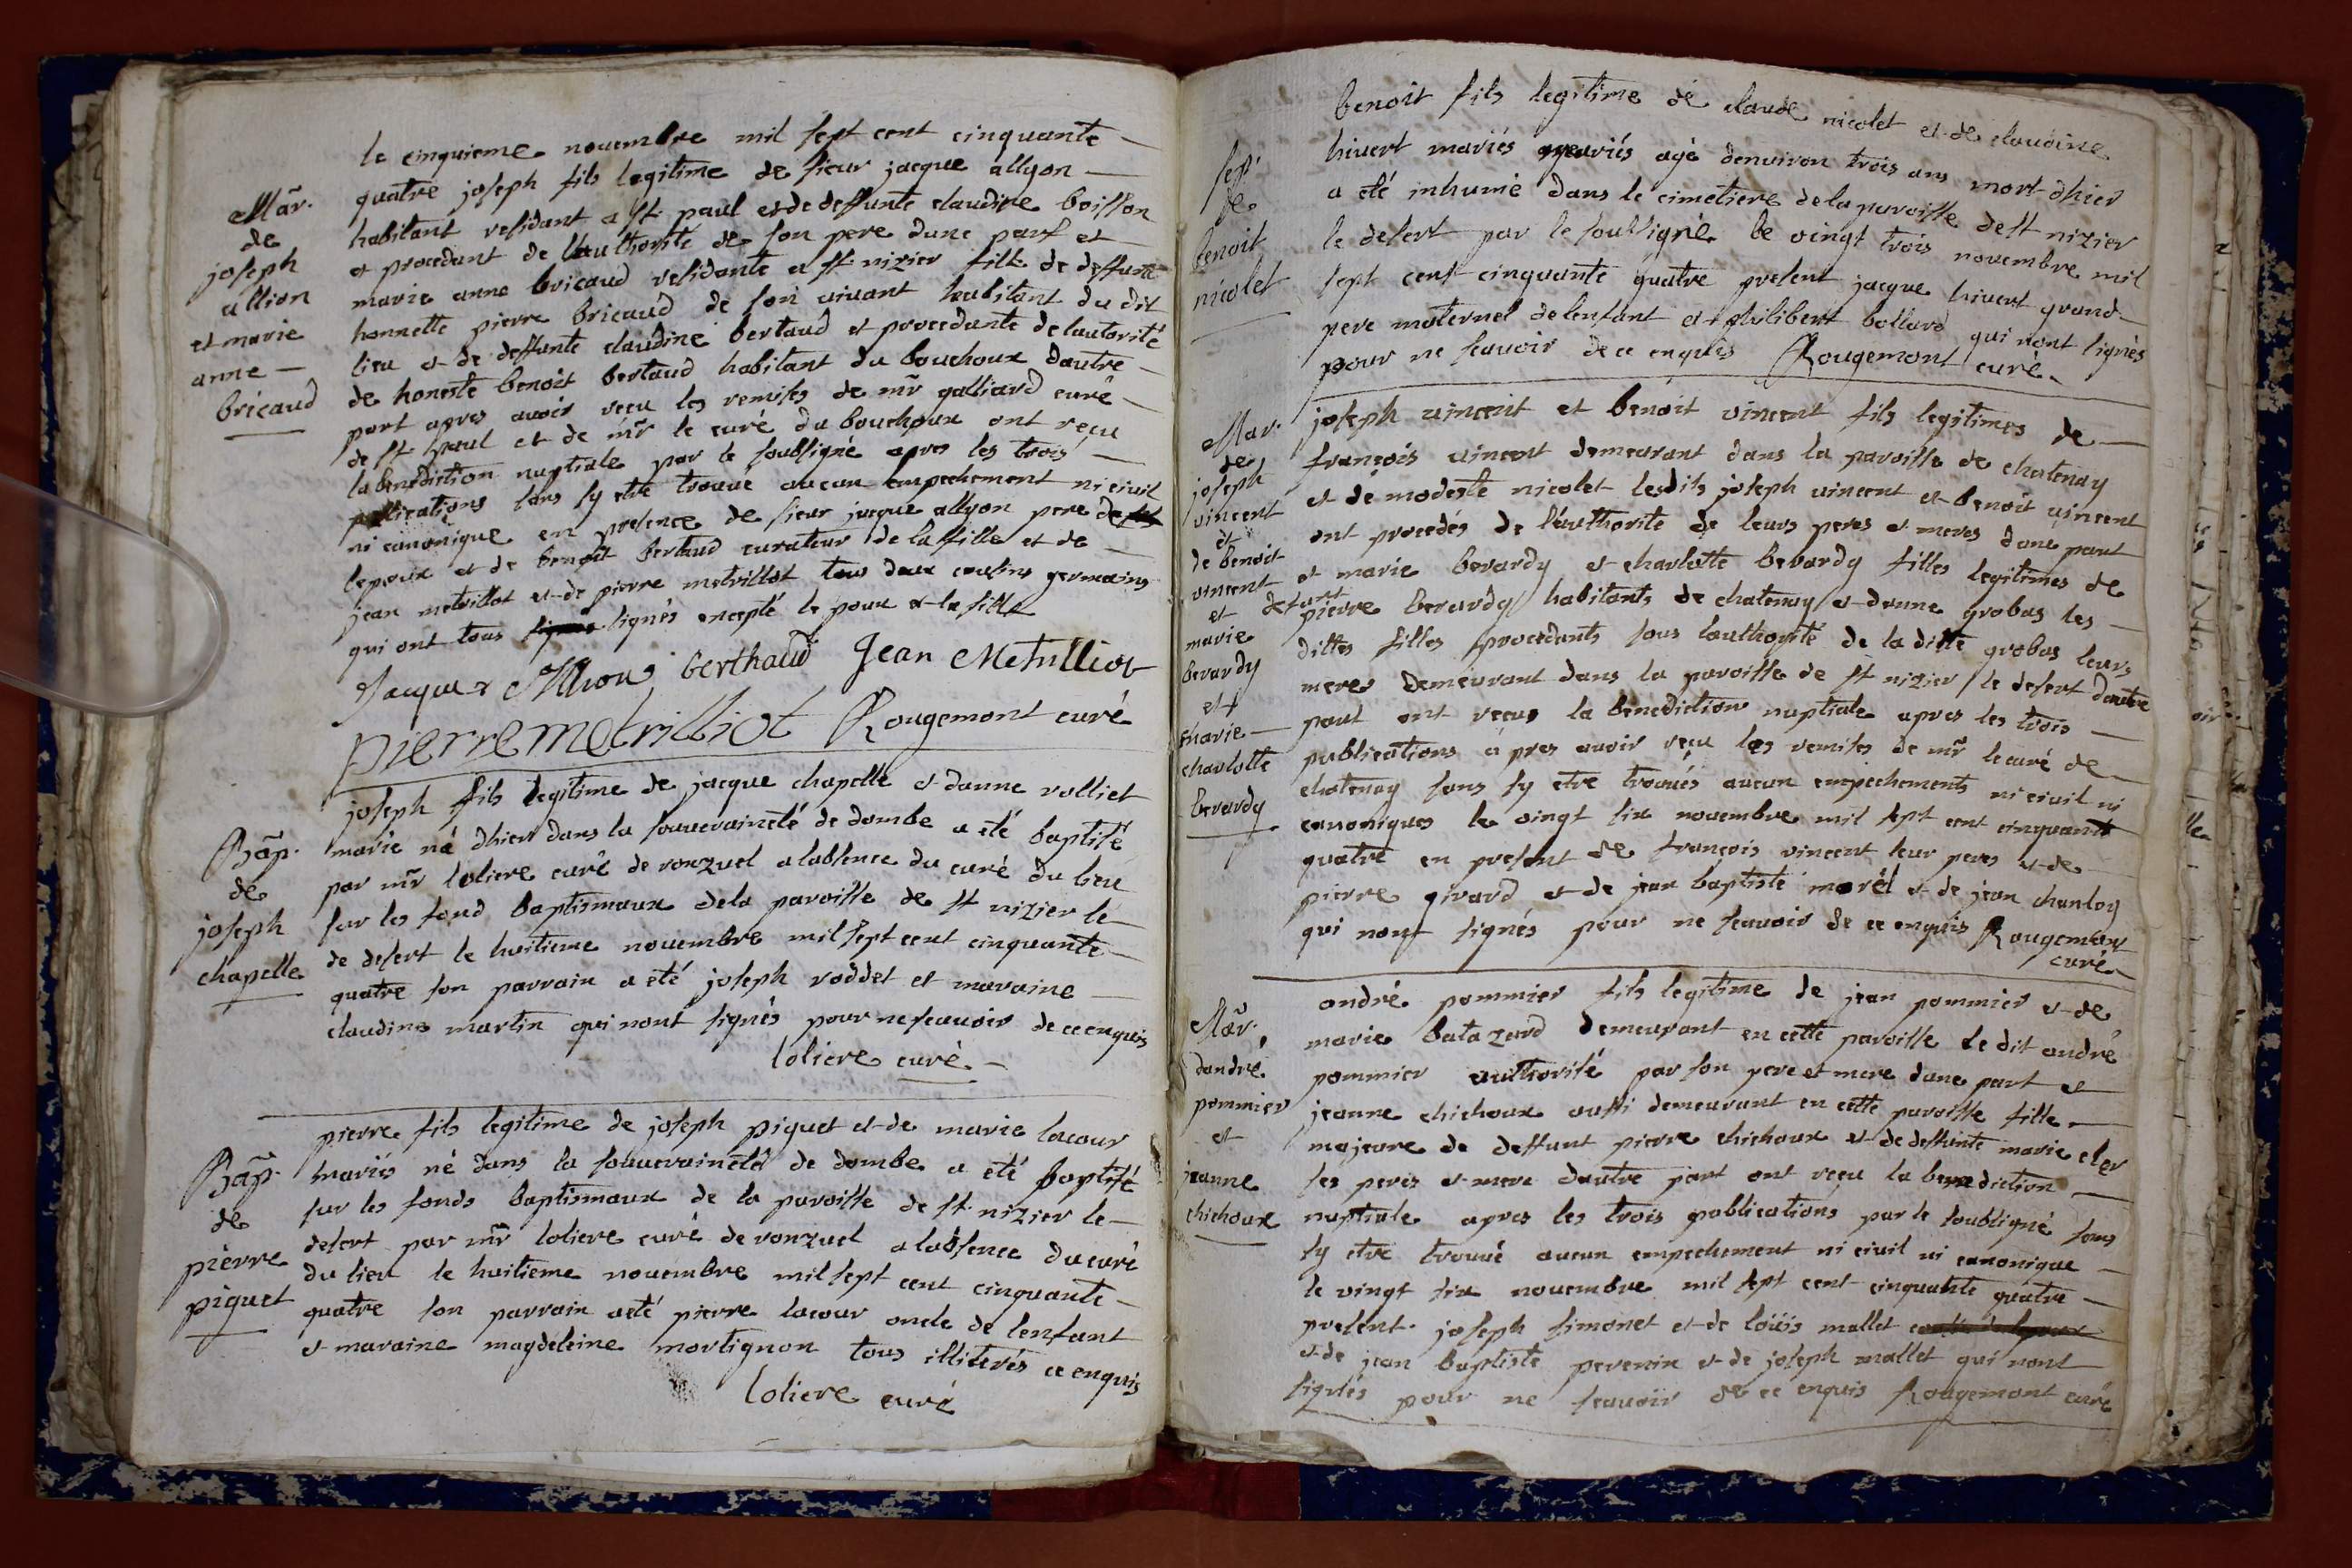 le cinquieme novembre mil sept cent cinquante
Mar.
de
joseph
allion
et marie
anne
bricaud
quatre joseph fils legitime de sieur jacque allyon
habitant residant a st paul et de deffunte claudine boisson
et procedant de lauthorité de son pere dune part et
marie anne bricaud residante a st nizier fille de deffunt
honnette pierre bricaud de son vivant habitant du dit
lieu et de deffunte claudine bertaud et procedante de lautorité
de honeste benoit bertaud habitant du bouchoux dautre
part apres avoir reçu les remises de mr galliard curé
de st paul et de mr le curé du bouchoux ont reçu
la benediction nuptiale par le soubsigné apres les trois
publications sans sy etre trouvé aucun empechement ni civil
ni canonique en presence de sieur jacque allyon pere de
lepoux et de benoit bertaud curateur de la fille et de
jean metrillot et de pierre metrillot tous deux cousins germains
qui ont tous signés excepté le poux et la fille
Jacque Allion berthaud Jean Metrilliot
pierre metrilliot Rougemont curé
Bap.
de
joseph
chapelle
joseph fils legitime de jacque chapelle et danne rolliet
marié né dhier dans la souveraineté de dombe a été baptisé
par mr loliere curé de ronzuel a labsence du curé du lieu
sur les fond baptismaux dela paroisse de st nizier le
de desert le huitieme novembre mil sept cent cinquante
quatre son parrain a été joseph roddet et maraine
claudine martin qui nont signés pour ne scavoir de ce enquis
loliere curé
Bap.
de
pierre
piguet
pierre fils legitime de joseph piguet et de marie lacour
mariés né dans la souveraineté de dombe a été baptisé
sur les fonds baptismaux de la paroisse de st nizier le
desert par mr loliere curé de ronzuel a labsence du curé
du lieu le huitieme novembre mil sept cent cinquante
quatre son parrain a été pierre lacour oncle de lenfant
et maraine magdeleine mortignon tous illiterés ce enquis
loliere curé
sep
de
benoit
nicolet
benoit fils legitime de claude nicolet et de claudine
hivert mariés agé denviron trois ans mort dhier
a été inhumé dans le cimetiere de la paroisse de st nizier
le desert par le soubsigné le vingt trois novembre mil
sept cent cinquante quatre present jacque hivert grand
pere maternel de lenfant et philibert bollard qui nont signés
pour ne scavoir de ce enquis Rougemont curé
Mar.
de
joseph
vincent
et
de benoit
vincent
et
marie
berardy
et
marie
charlotte
berardy
joseph vincent et benoit vincent fils legitimes de
françois vincent demeurant dans la paroisse de chatenay
et de modeste nicolet lesdits joseph vincent et benoit vincent
ont procedés de lauthorité de leurs peres et meres dune part
et marie berardy et charlotte berardy filles legitimes de
defunt pierre berardy habitants de chatenay et danne grobas les
dittes filles procedants sous lauthorité de la ditte grobas leurs
meres demeurant dans la paroisse de st nizier le desert dautre
part ont recus la benediction nuptiale apres les trois
publications apres avoir reçu les remises de mr le curé de
chatenay sans sy etre trouvés aucun empechements ni civil ni
canoniques le vingt six novembre mil sept cent cinquante
quatre en present de françois vincent leur peres et de
pierre girard et de jean baptiste morel et de jean chanloy
qui nont signés pour ne scavoir de ce enquis Rougemont
curé
Mar.
dandré
pommier
et
jeanne
chichoux
andré pommier fils legitime de jean pommier et de
marie batazard demeurant en cette paroisse le dit andré
pommier authorisé par son pere et mere dune part et
jeanne chichoux aussi demeurant en cette paroisse fille
majeure de deffunt pierre chichoux et de deffunte marie cler
ses peres et mere dautre part ont reçu la benediction
nuptiale apres les trois publications par le soubsigné sans
sy etre trouvé aucun empechement ni civil ni canonique
le vingt six novembre mil sept cent cinquante quatre
present joseph simonet et de loüis mallet
et de jean baptiste pevenin et de joseph mallet qui nont
signés pour ne scavoir de ce enquis Rougemont curé